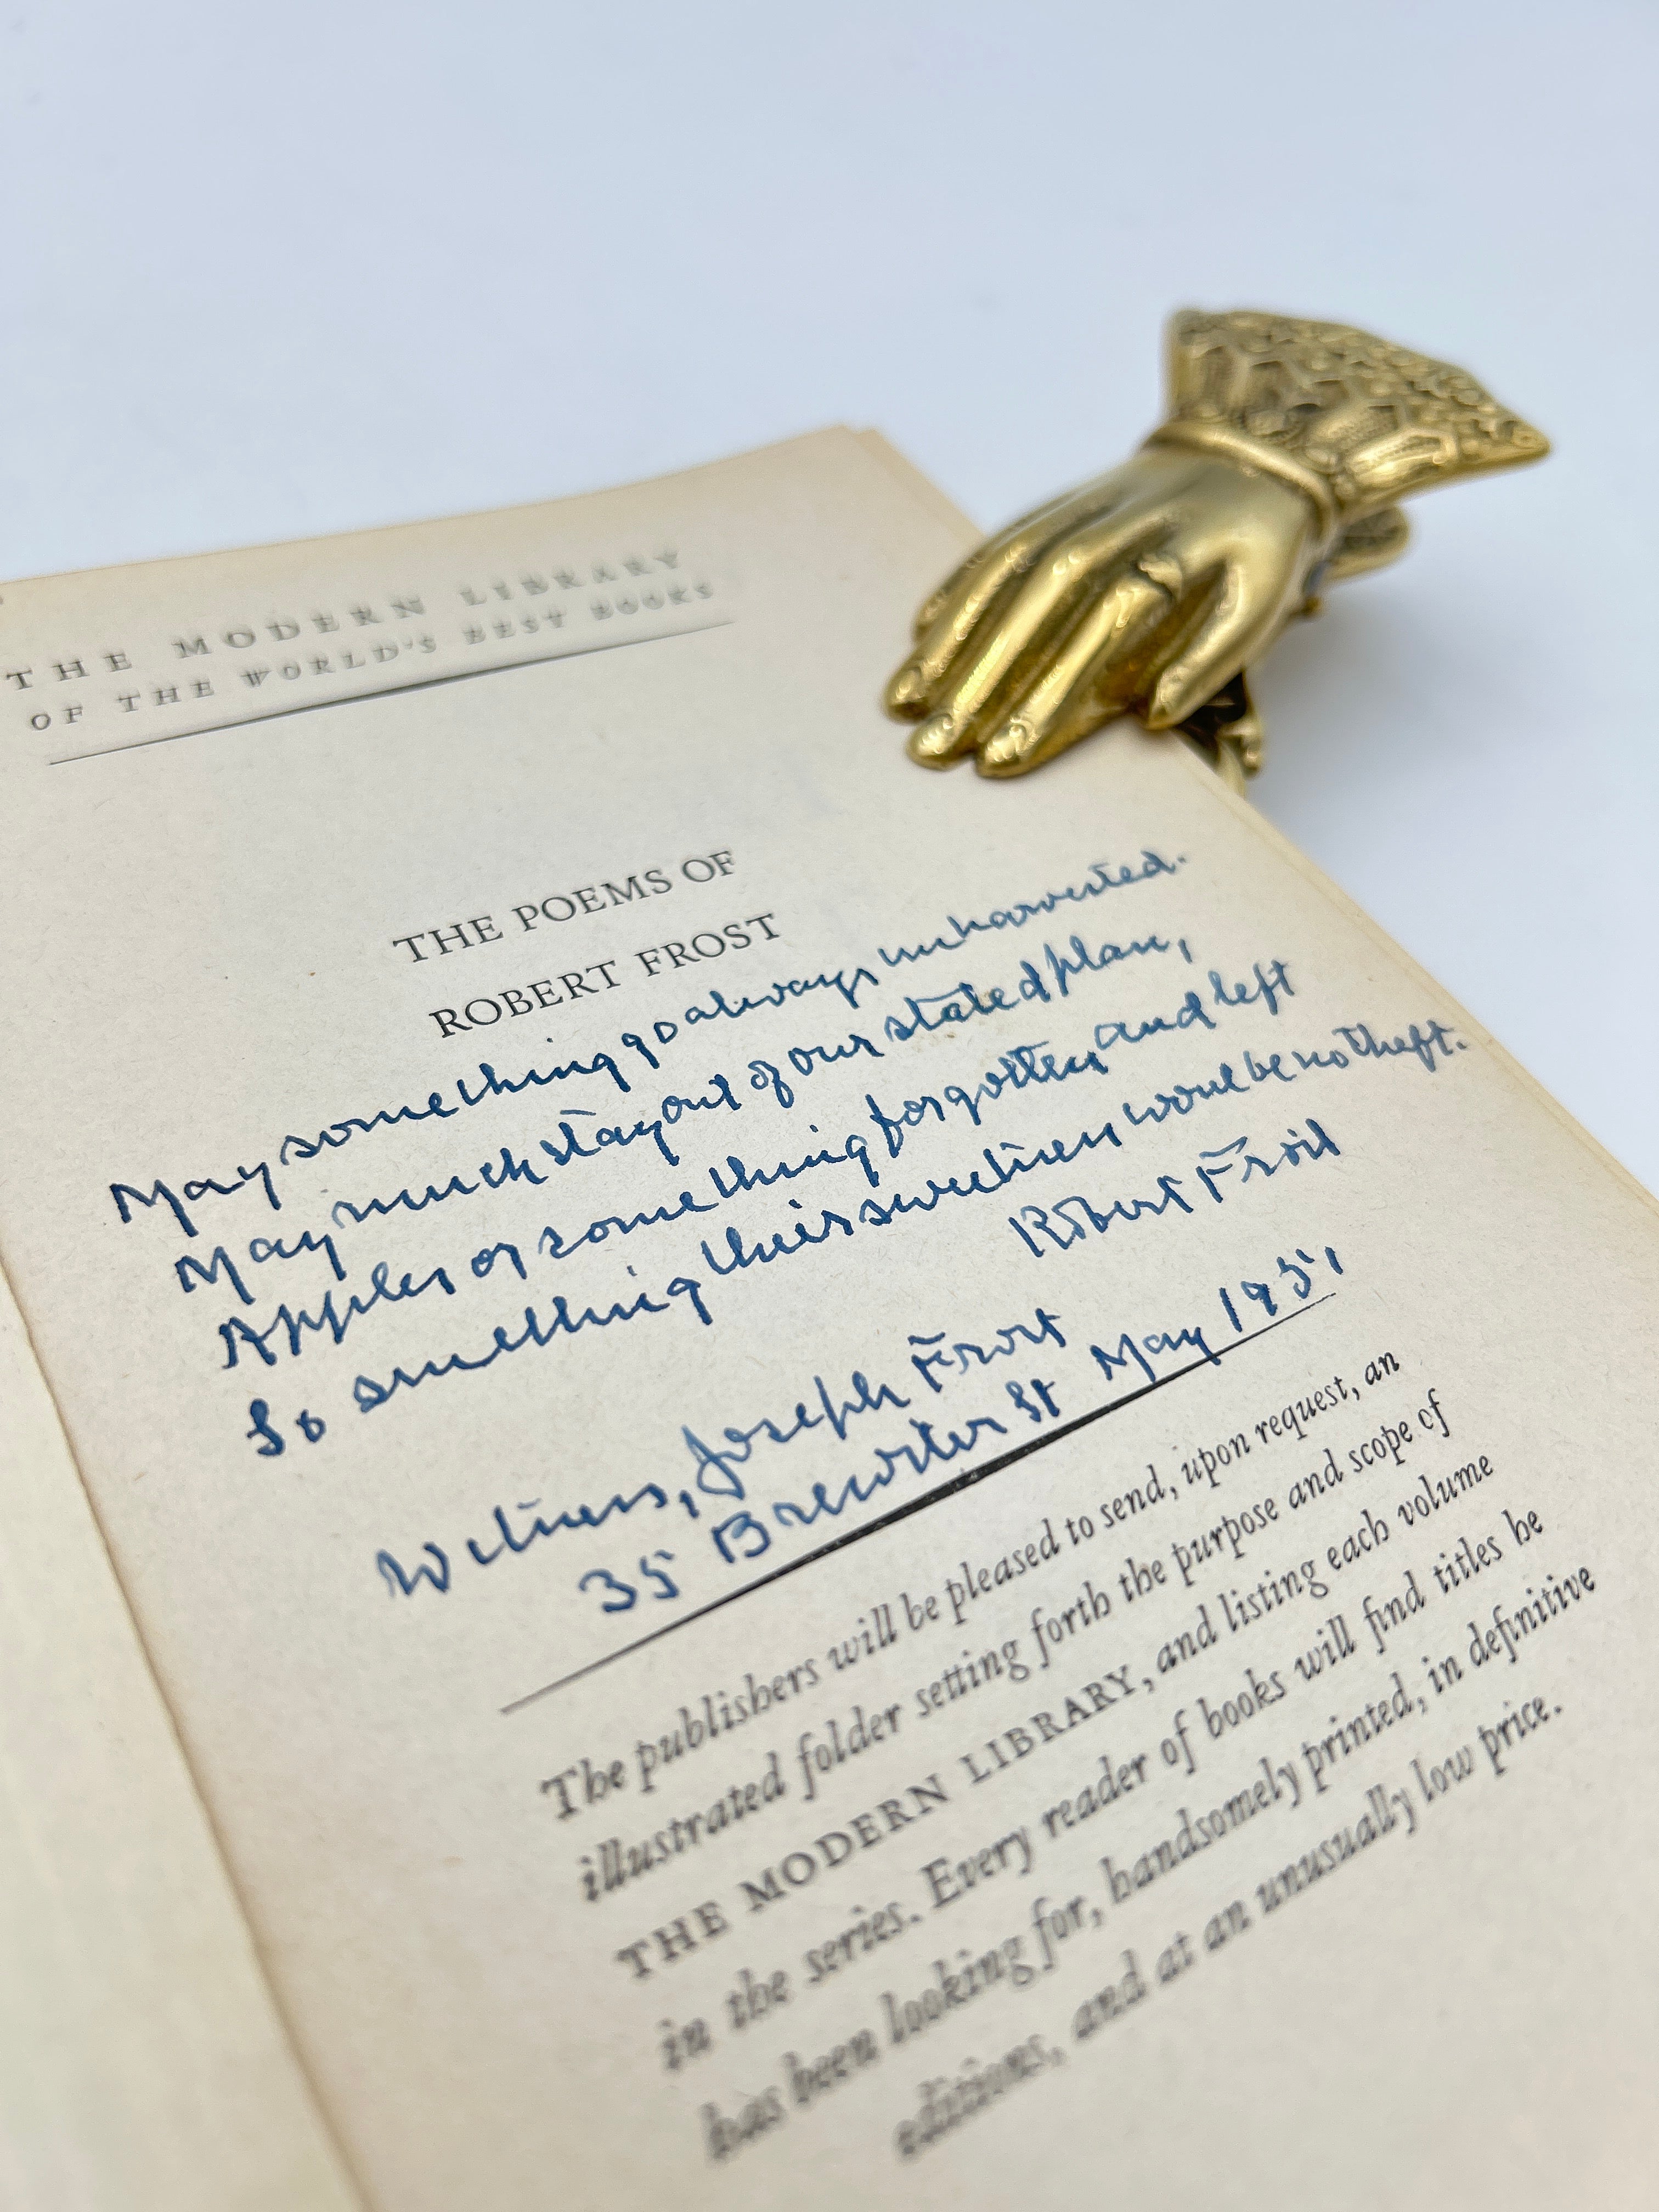 THE MODERN LIBRARY
OF THE WORLD'S BEST BOOKS
THE POEMS OF
ROBERT FROST
May something go always unharvested.
May much stay out of our stated plan,
Apples or something forgotten and left
So smelling their sweetness would be no theft.
Robert Frost
Witness, Joseph Frost
35 Brewster St May 1951
The publishers will be pleased to send, upon request, an
illustrated folder setting forth the purpose and scope of
THE MODERN LIBRARY, and listing each volume
in the series. Every reader of books will find titles he
has been looking for, handsomely printed, in definitive
editions, and at an unusually low price.